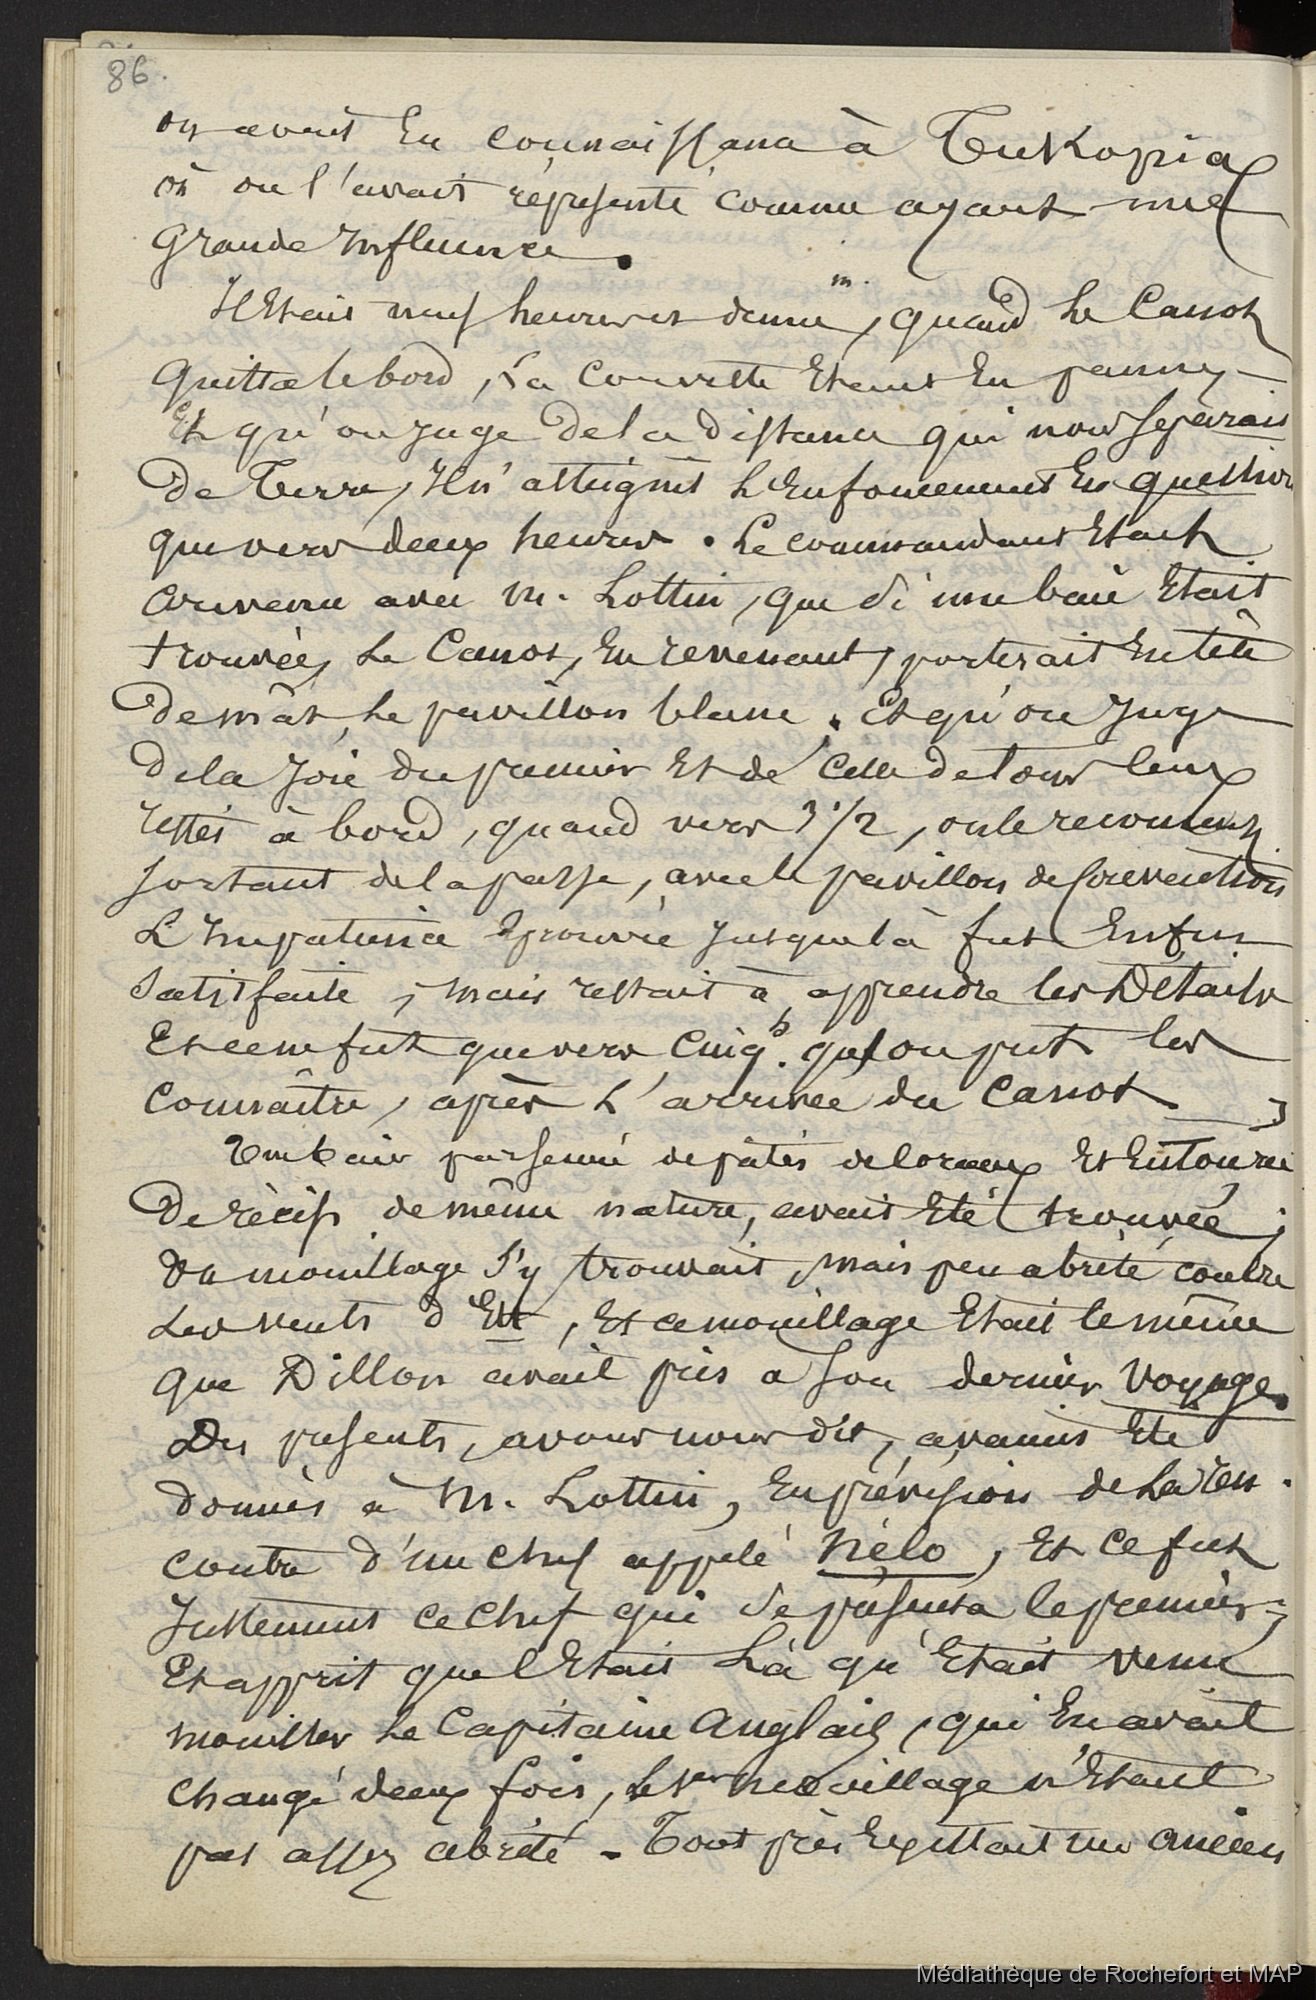 86.
on avait eu connaissance à Tukopia
où on l'avait représenté comme ayant une
grande influence.
Il était neuf heures et demie m., quand le Canot
quitta le bord, la Corvette étant en panne,
Et qu'on juge de la distance qui nous séparait
de Terre, Il n'atteignit l'Enfoncement En question
que vers deux heures. Le commandant était
convenu avec M. Lottin, que si une baie Etait
trouvée, le Canot, En revenant, porterait En tête
de mât, le pavillon blanc. Et qu'on juge
de la joie du premier Et de celle de tous ceux
restés à bord, quand vers 3 1/2, on le reconnut
sortant de la passe, avec le pavillon de Convention
L'Impatience Eprouvée jusque là fut Enfin
satisfaite, mais restait à apprendre les Détails
Et ce ne fut que vers Cinq h. que l'on put les
Connaître, après l'arrivée du Canot.
Une baie parsemée de pâtés de Coraux Et Entourée
De récifs de même nature, avait Eté trouvée;
Un mouillage s'y trouvait, mais peu abrité contre
Les vents d'Est, Et ce mouillage Etait le même
que Dillon avait pris à son dernier Voyage.
Des présents, avons nous dit, avaient Eté
donnés à M. Lottin, En prévision de la ren-
contre d'un chef appelé Nélo, Et ce fut
Justement ce chef qui se présenta le premier;
Et apprit que c'Etait Là qu'Etait venu
mouiller le Capitaine Anglais, qui En avait
changé deux fois, le 1er mouillage n'Etant
pas assez abrité. Tout près Existait un ancien
Médiathèque de Rochefort et MAP